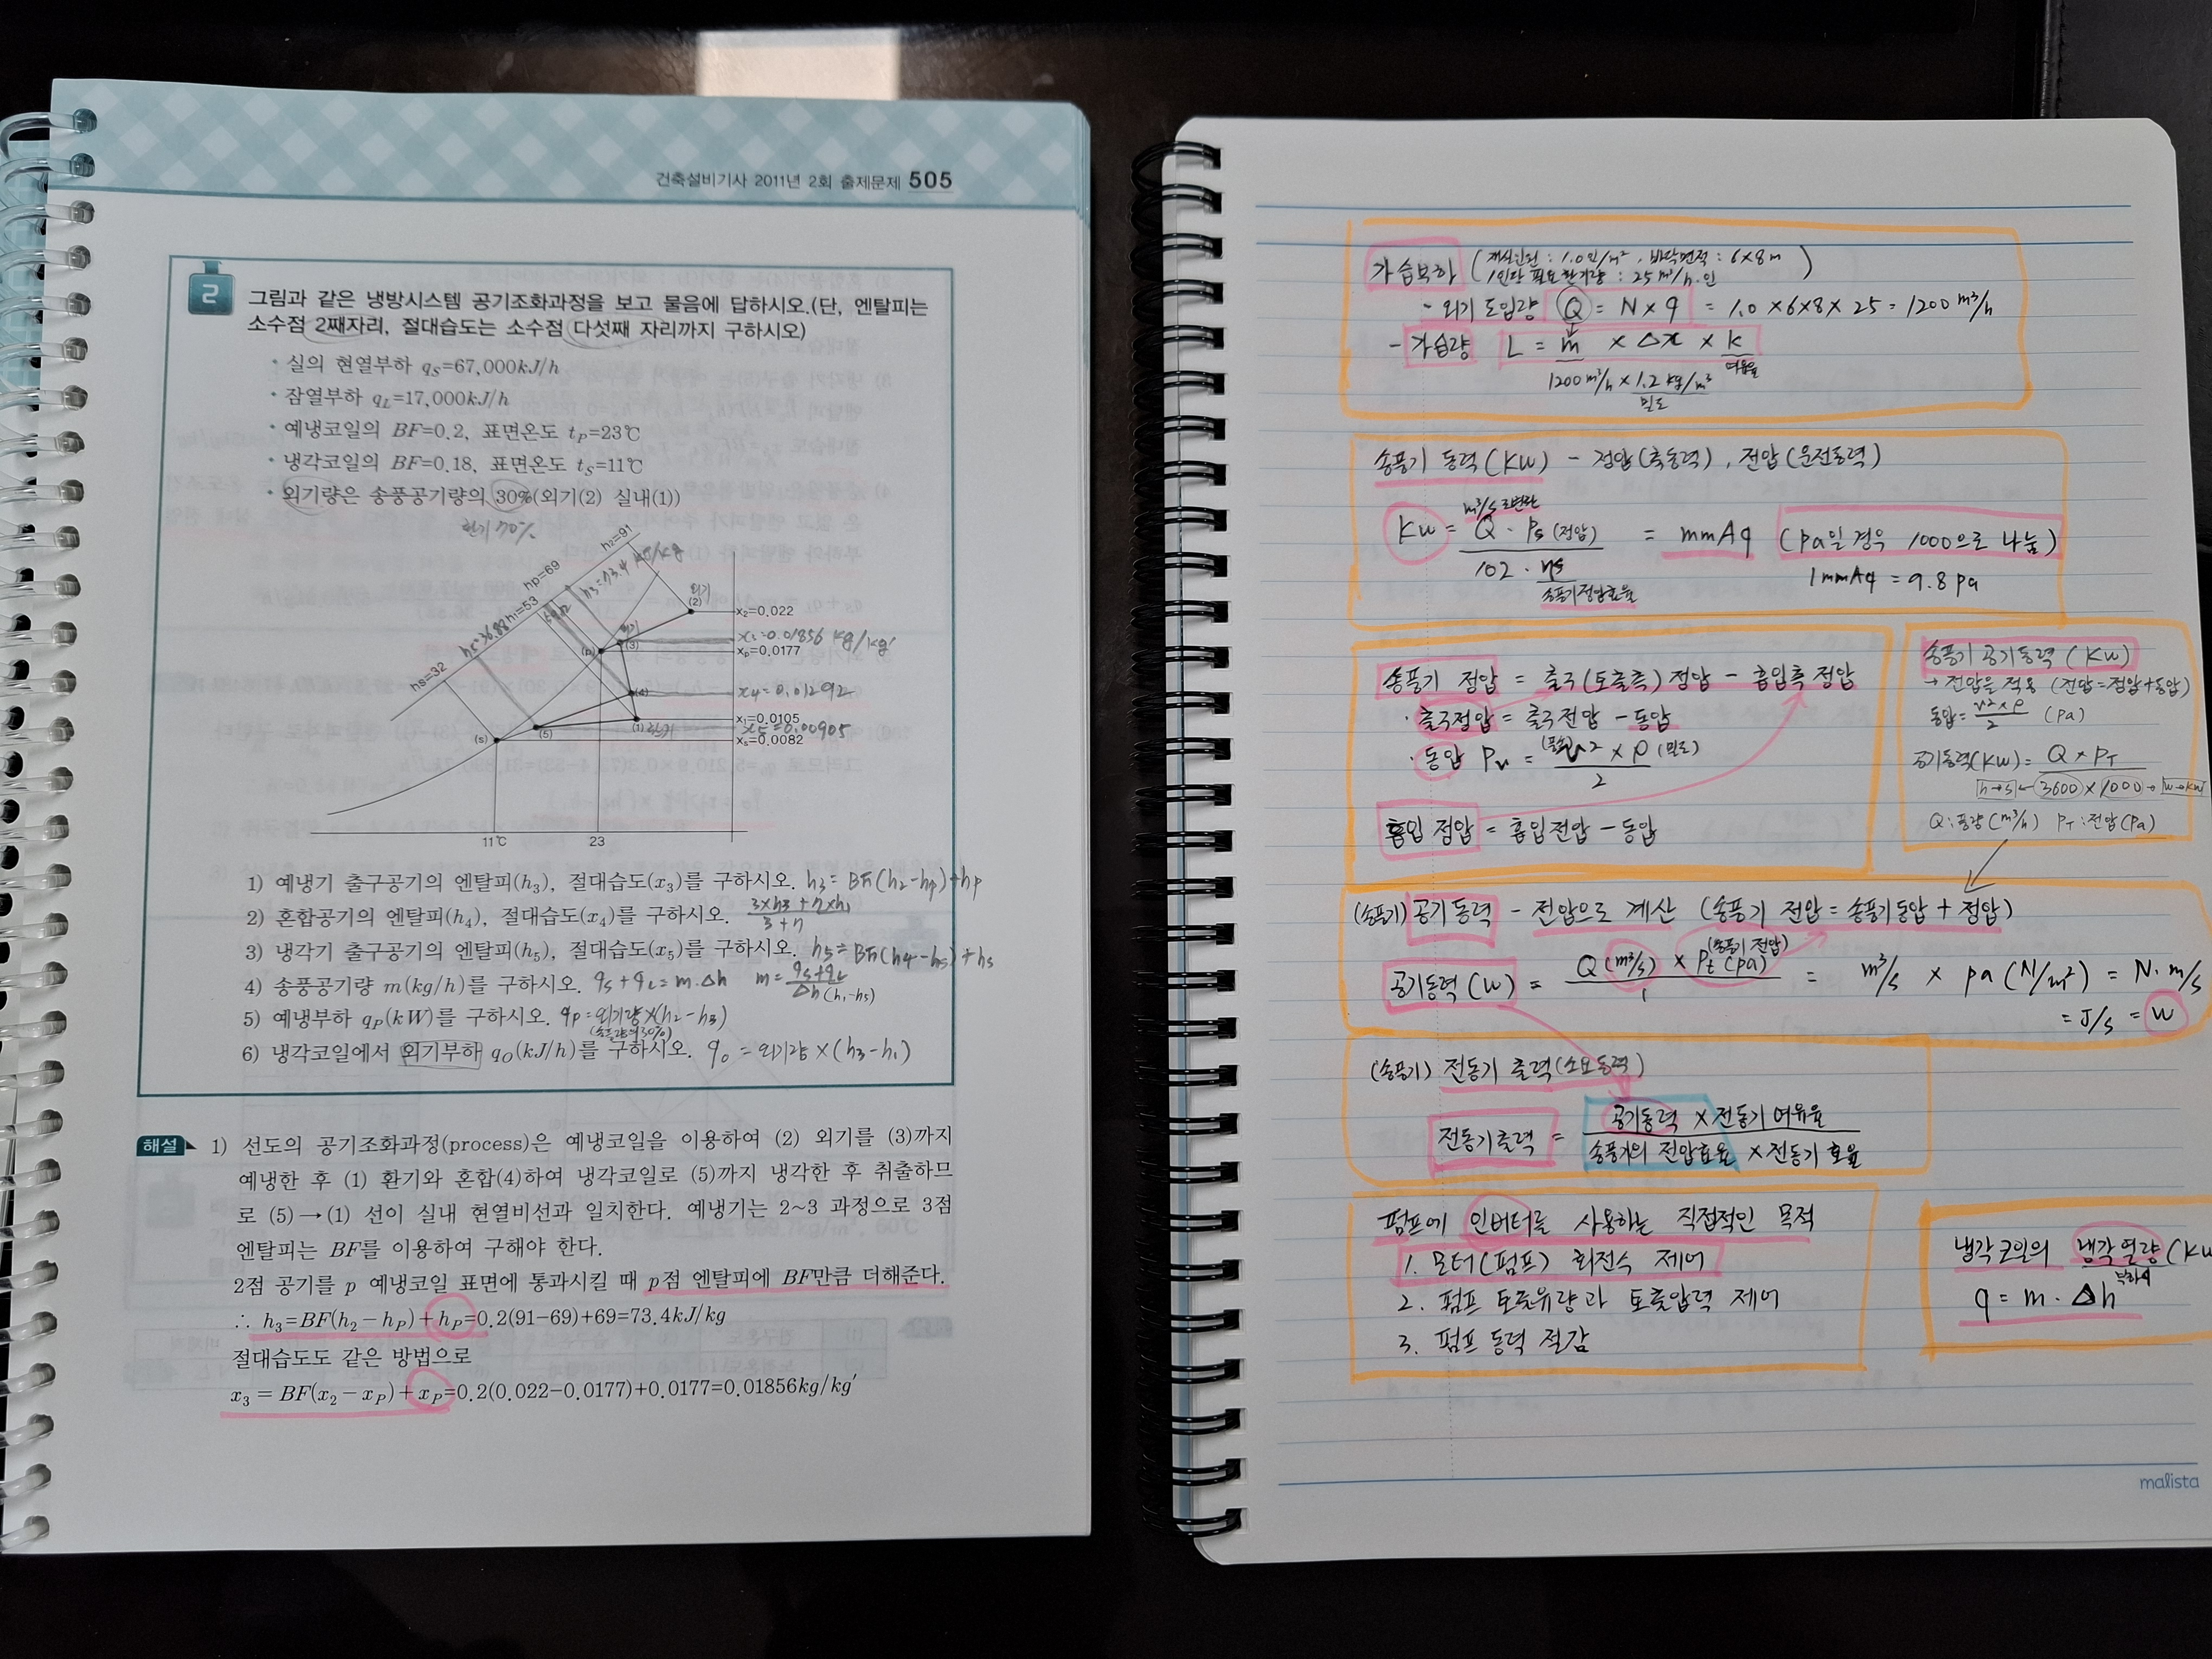 건축설비기사 2011년 2회 출제문제 505
2
그림과 같은 냉방시스템 공기조화과정을 보고 물음에 답하시오.(단, 엔탈피는
소수점 2째자리, 절대습도는 소수점 다섯째 자리까지 구하시오)
· 실의 현열부하 qS=67,000kJ/h
· 잠열부하 qL=17,000kJ/h
· 예냉코일의 BF=0.2, 표면온도 tP=23℃
· 냉각코일의 BF=0.18, 표면온도 tS=11℃
· 외기량은 송풍공기량의 30%(외기(2) 실내(1))
환기 70%
h2=91
h3=73.4 kJ/kg
hp=69
h1=53
h5=36.88
hs=32
외기
(2)
x2=0.022
(3)
x3=0.01856 kg/kg'
(p)
xp=0.0177
(4)
x4=0.01292
(1) 환기
x1=0.0105
x5=0.00905
(5)
(s)
xs=0.0082
11℃ 23
1) 예냉기 출구공기의 엔탈피(h3), 절대습도(x3)를 구하시오. h3= BF(h2-hp)+hp
2) 혼합공기의 엔탈피(h4), 절대습도(x4)를 구하시오. 3×h3+7×h1 / 3+7
3) 냉각기 출구공기의 엔탈피(h5), 절대습도(x5)를 구하시오. h5=BF(h4-hs)+hs
4) 송풍공기량 m(kg/h)를 구하시오. qs+qL=m·Δh m=qs+qL / Δh(h1-h5)
5) 예냉부하 qP(kW)를 구하시오. qp=외기량×(h2-h3)
(송풍량의 30%)
6) 냉각코일에서 외기부하 qO(kJ/h)를 구하시오. qo=외기량×(h3-h1)
해설 1) 선도의 공기조화과정(process)은 예냉코일을 이용하여 (2) 외기를 (3)까지
예냉한 후 (1) 환기와 혼합(4)하여 냉각코일로 (5)까지 냉각한 후 취출하므
로 (5)→(1) 선이 실내 현열비선과 일치한다. 예냉기는 2~3 과정으로 3점
엔탈피는 BF를 이용하여 구해야 한다.
2점 공기를 p 예냉코일 표면에 통과시킬 때 p점 엔탈피에 BF만큼 더해준다.
∴ h3=BF(h2-hP)+hP=0.2(91-69)+69=73.4kJ/kg
절대습도도 같은 방법으로
x3 = BF(x2-xP)+xP=0.2(0.022-0.0177)+0.0177=0.01856kg/kg'
가습부하 (재실인원 : 1.0인/m², 바닥면적 : 6×8m
1인당 필요환기량 : 25m³/h·인)
- 외기 도입량 Q = N×q = 1.0×6×8×25=1200 m³/h
- 가습량 L = m × Δx × k
여유율
1200m³/h × 1.2 kg/m³
밀도
송풍기 동력(kW) - 정압(축동력), 전압(운전동력)
m³/s로 변환
Kw = Q · Ps (전압) / 102 · ηs = mmAq (pa일 경우 1000으로 나눔)
송풍기정압효율
1mmAq = 9.8 pa
송풍기 정압 = 출구(토출측) 정압 - 흡입측 정압
· 출구정압 = 출구전압 - 동압
· 동압 Pv = (풍속)v² × ρ (밀도) / 2
흡입 정압 = 흡입전압 - 동압
송풍기 공기동력 (Kw)
→ 전압을 적용 (전압=정압+동압)
동압 = v²×ρ / 2 (pa)
공기동력(kw) = Q × PT
h→s ← 3600 × 1000 → w→kw
Q : 풍량(m³/h) PT : 전압(pa)
(송풍기) 공기동력 - 전압으로 계산 (송풍기 전압=송풍기동압+정압)
(송풍기 전압)
공기동력(w) = Q(m³/s) × Pt(pa) / 1 = m³/s × pa(N/m²) = N·m/s
= J/s = w
(송풍기) 전동기 출력(소요동력)
전동기출력 = 공기동력 × 전동기 여유율 / 송풍기의 전압효율 × 전동기 효율
펌프에 인버터를 사용하는 직접적인 목적
1. 모터(펌프) 회전수 제어
2. 펌프 토출유량과 토출압력 제어
3. 펌프 동력 절감
냉각코일의 냉각열량(Kw
부하
q = m · Δh
malista